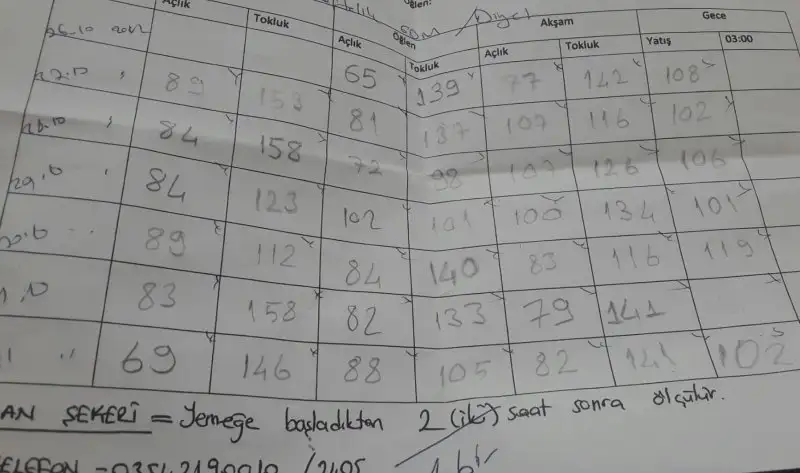 Öğlen:
Açlık Tokluk Öğlen Akşam Gece
Açlık Tokluk Açlık Tokluk Yatış 03:00
26.10 65 139 77 142 108
27.10 89 153 81 137 107 116 102
28.10 84 158 72 98 107 126 106
29.10 84 123 102 101 100 134 101
89 112 84 140 83 116 119
83 158 82 133 79 141
69 146 88 105 82 141 102
AN ŞEKERİ = Yemeğe başladıktan 2 (iki) saat sonra ölçülür.